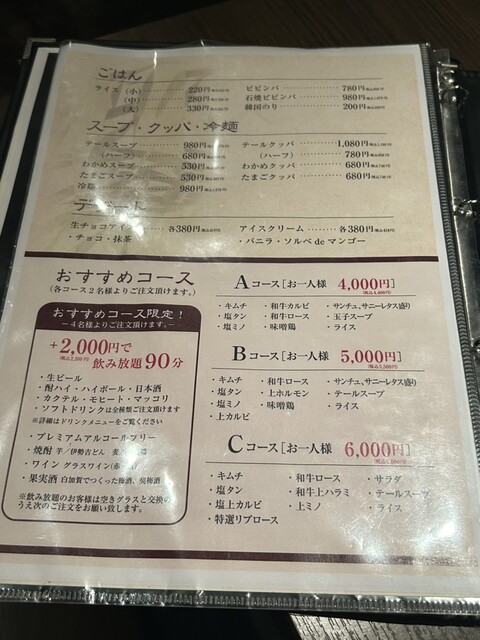 ごはん
ライス（小） 220円
（中） 280円
（大） 330円
ビビンバ 780円
石焼ビビンバ 980円
韓国のり 200円
スープ・クッパ・冷麺
テールスープ 980円
（ハーフ） 680円
わかめスープ 530円
たまごスープ 530円
冷麺 980円
テールクッパ 1,080円
（ハーフ） 780円
わかめクッパ 680円
たまごクッパ 680円
デザート
生チョコアイス 各380円
・チョコ・抹茶
アイスクリーム 各380円
・バニラ・ソルベ de マンゴー
おすすめコース
（各コース2名様よりご注文頂けます。）
おすすめコース限定！
－4名様よりご注文頂けます。－
+2,000円で
(税込2,200円)
飲み放題90分
・生ビール
・酎ハイ・ハイボール・日本酒
・カクテル・モヒート・マッコリ
・ソフトドリンクは全種類ご注文頂けます
※詳細はドリンクメニューをご覧ください
・プレミアムアルコールフリー
・焼酎 芋／伊勢吉どん
・ワイン グラスワイン
・果実酒 白加賀でつくった梅酒、
※飲み放題のお客様は空きグラスと交換の
うえ次のご注文をお願い致します。
Aコース［お一人様 4,000円］
(税込4,400円)
・キムチ ・和牛カルビ ・サンチュ、サニーレタス盛り
・塩タン ・和牛ロース ・玉子スープ
・塩ミノ ・味噌鶏 ・ライス
Bコース［お一人様 5,000円］
(税込5,500円)
・キムチ ・和牛ロース ・サンチュ、サニーレタス盛り
・塩タン ・上ホルモン ・テールスープ
・塩ミノ ・味噌鶏 ・ライス
・上カルビ
Cコース［お一人様 6,000円］
(税込6,600円)
・キムチ ・和牛ロース ・サラダ
・塩タン ・和牛上ハラミ ・テールスープ
・塩上カルビ ・上ミノ ・ライス
・特選リブロース